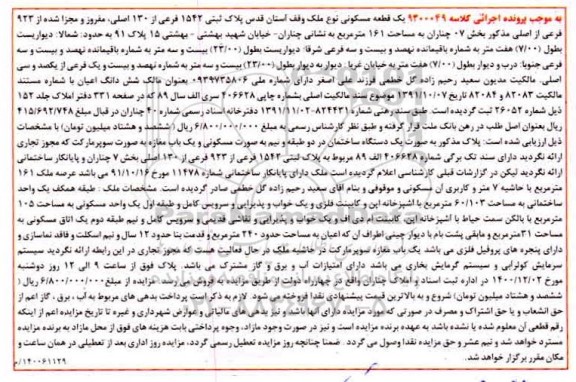 به موجب پرونده اجرائی کلاسه ۹۳۰۰۰۴۹ یک قطعه مسکونی نوع ملک وقف آستان قدس پلاک ثبتی ۱۵۴۲ فرعی از ۱۳۰ اصلی، مفروز و مجزا شده از ۹۲۳
فرعی از اصلی مذکور بخش ۰۷ چناران به مساحت ۱۶۱ مترمربع به نشانی چناران- خیابان شهید بهشتی - بهشتی ۱۵ پلاک ۹۱ به حدود: شمالا: دیواریست
بطول (۷/۰۰) هفت متر به شماره باقیمانده نهصد و بیست و سه فرعی شرقا: دیواریست بطول (۲۳/۰۰) بیست و سه متر به شماره باقیمانده نهصد و بیست و سه
فرعی جنوبا: درب و دیوار بطول (۷/۰۰) هفت متر به خیابان غربا: دیوار به دیوار بطول (۲۳/۰۰) بیست و سه متر به شماره نهصد و بیست و یک فرعی از یکصد و سی
اصلی. مالکیت مدیون سعید رحیم زاده گل خطمی فرزند علی اصغر دارای شماره ملی ۰۹۳۹۷۳۵۸۰۶ بعنوان مالک شش دانگ اعیان با شماره مستند
مالکیت ۸۲۰۸۳ و ۸۲۰۸۴ تاریخ ۱۳۹۱/۱۰/۰۷ موضوع سند مالکیت اصلی بشماره چاپی ۲۰۶۶۲۸ سری الف سال ۸۹ که در صفحه ۳۳۱ دفتر املاک جلد ۱۵۲
ذیل شماره ۲۶۰۵۲ ثبت گردیده است. طبق سند رهنی شماره ۸۲۴۴۳۱-۱۳۹۱/۱۱/۰۲ دفترخانه اسناد رسمی شماره ۴۰ چناران در قبال مبلغ ۴۱۵/۶۹۲/۷۴۸
ریال بعنوان اصل طلب در رهن بانک ملت قرار گرفته و طبق نظر کارشناس رسمی به مبلغ ۶/۸۰۰/۰۰۰/۰۰۰ ریال (ششصد و هشتاد میلیون تومان) با مشخصات
ذیل ارزیابی شده است: پلاک مذکور به صورت یک دستگاه ساختمان در دو طبقه و نیم به صورت مسکونی و یک باب مغازه به صورت سوپرمارکت که مجوز تجاری
ارائه نگردید دارای سند تک برگی شماره ۴۰۶۶۲۸ الف ۸۹ مربوط به پلاک ثبتی ۱۵۴۲ فرعی از ۹۲۳ فرعی از ۱۳۰ اصلی بخش ۷ چناران و پایانکار ساختمانی
ارائه نگردید لیکن در گزارشات قبلی کارشناسی اعلام گردیده است ملک دارای پایانکار ساختمانی شماره ۱۱۴۷۸ مورخ ۹۱/۱۰/۱۶ می باشد عرصه ملک ۱۶۱
مترمربع با حاشیه ۷ متر و کاربری آن مسکونی و موقوفی و بنام آقای سعید رحیم زاده گل خطمی صادر گردیده است. مشخصات ملک : طبقه همکف یک واحد
ساختمانی به مساحت ۶۰/۱۰۳ مترمربع با اشپزخانه اپن و کابینت فلزی و یک خواب و پذیرایی و سرویس کامل و طبقه اول یک واحد مسکونی به مساحت ۱۰۵
مترمربع با بالکن سمت حیاط با اشپزخانه اپن، کابینت ام دی اف و یک خواب و پذیرایی و نقاشی قدیمی و سرویس کامل و نیم طبقه دوم یک اتاق مسکونی به
مساحت ۳۱مترمربع و مابقی پشت بام با دیوار چینی اطراف آن که اعیان به مساحت حدود ۲۴۰ مترمربع و قدمت بنا حدود ۱۲ سال و نیم اسکلت و فاقد نماسازی و
دارای پنجره های پروفیل فلزی می باشد یک باب مغازه سوپرمارکت در حاشیه ملک در حال فعالیت هست که مجوز تجاری در این رابطه ارائه نگردید سیستم
سرمایش کولرآبی و سیستم گرمایش بخاری می باشد دارای امتیازات آب و برق و گاز مشترک می باشد. پلاک فوق از ساعت ۹ الی ۱۲ روز دوشنبه
مورخ ۱۴۰۰/۱۲/۰۲ در اداره ثبت اسناد و املاک چناران واقع در چهارراه دولت از طریق مزایده به فروش می رسد. مزایده از مبلغ۶/۸۰۰/۰۰۰/۰۰۰ ریال (
ششصد و هشتاد میلیون تومان) شروع و به بالاترین قیمت پیشنهادی نقدا فروخته می شود. لازم به ذکر است پرداخت بدهی های مربوط به آب ، برق ، گاز اعم از
حق انشعاب و یا حق اشتراک و مصرف در صورتی که مورد مزایده دارای آنها باشد و نیز بدهی های مالیاتی و عوارض شهرداری و غیره تا تاریخ مزایده اعم از اینکه
رقم قطعی آن معلوم شده یا نشده باشد به عهده برنده مزایده است و نیز در صورت وجود مازاد، وجوه پرداختی بابت هزینه های فوق از محل مازاد به برنده مزایده
مسترد خواهد شد و نیم عشر و حق مزایده نقدا وصول می گردد . ضمنا چنانچه روز مزایده تعطیل رسمی گردد، مزایده روز اداری بعد از تعطیلی در همان ساعت و
مکان مقرر برگزار خواهد شد. ۱۴۰۰۶۱۱۲۹/م